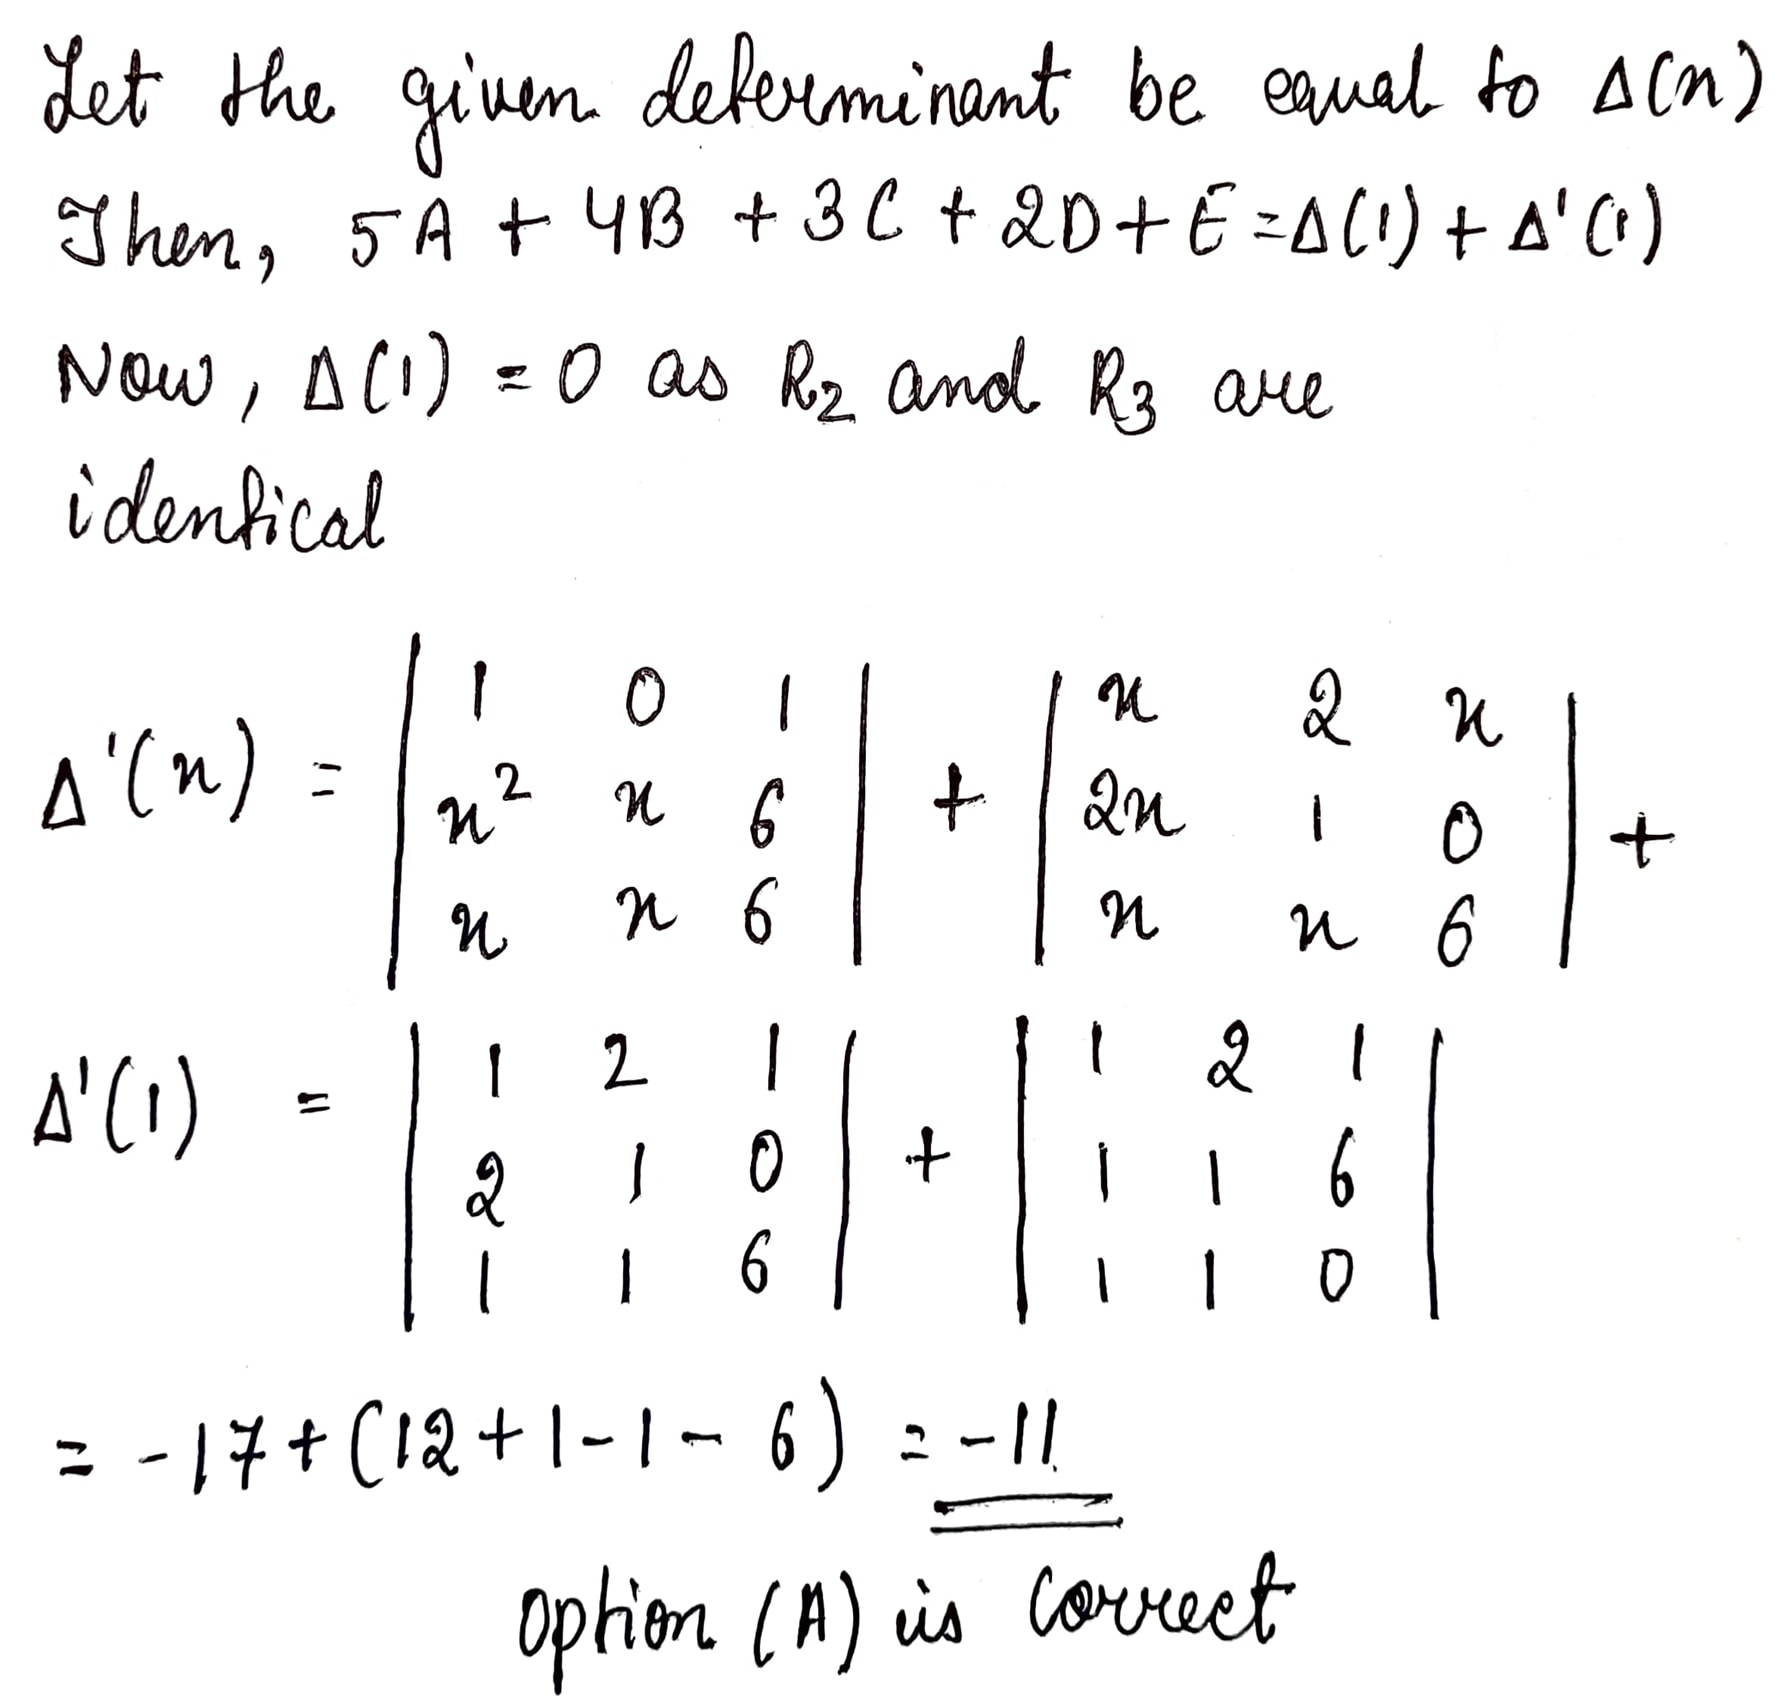 Let the given determinant be equal to Δ(x)
Then, 5A + 4B + 3C + 2D + E = Δ(1) + Δ'(1)
Now, Δ(1) = 0 as R₂ and R₃ are
identical
Δ'(x) = | 1 0 1 | + | x 2 x | +
| x² x 6 | | 2x 1 0 |
| x x 6 | | x x 6 |
Δ'(1) = | 1 2 1 | + | 1 2 1 |
| 2 1 0 | | 1 1 6 |
| 1 1 6 | | 1 1 0 |
= -17 + (12 + 1 - 1 - 6) = -11
option (A) is correct